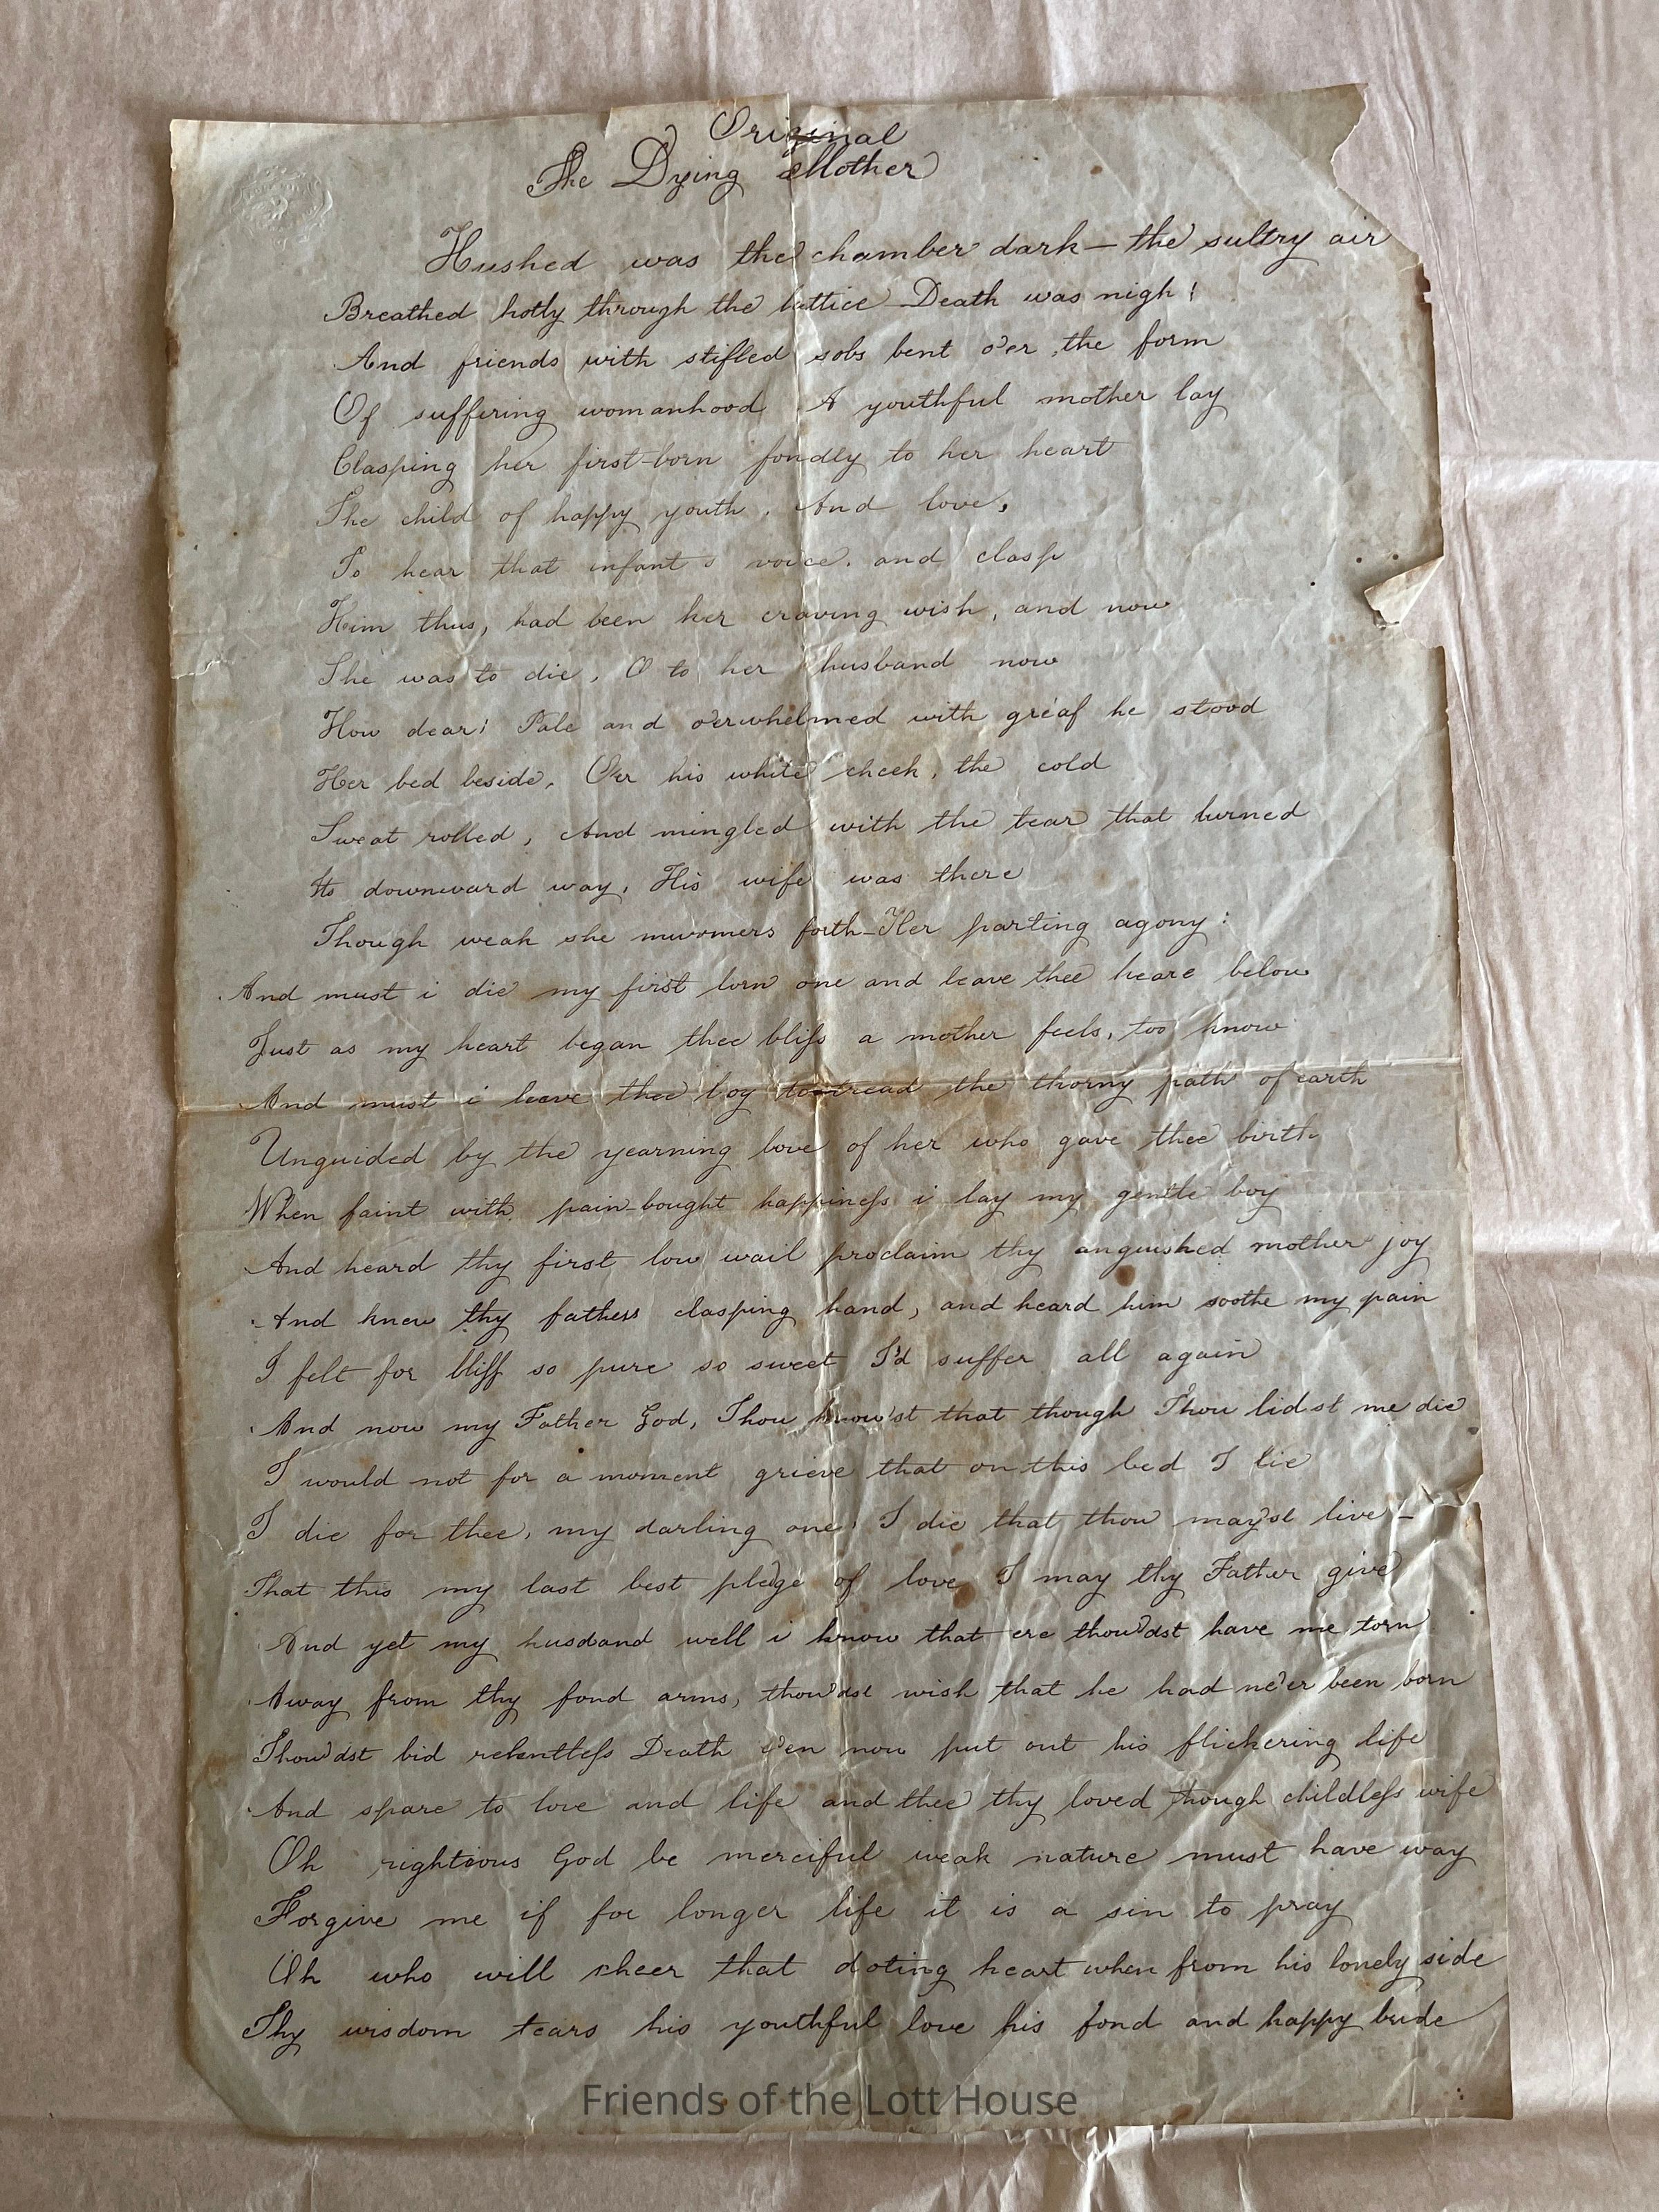 Original
The Dying Mother
Hushed was the chamber dark — the sultry air
Breathed hotly through the lattice Death was nigh!
And friends with stifled sobs bent o'er the form
Of suffering womanhood A youthful mother lay
Clasping her first-born fondly to her heart
The child of happy youth. And love,
To hear that infant s voice. and clasp
Him thus, had been her craving wish, and now
She was to die, O to her husband now
How dear! Pale and o'erwhelmed with greaf he stood
Her bed beside. Oer his white cheek, the cold
Sweat rolled, And mingled with the tear that burned
Its downward way. His wife was there
Though weak she murmers forth - Her parting agony:
And must i die my first born one and leave thee heare below
Just as my heart began thee bliss a mother feels, too know
And must i leave thee boy to tread the thorny path of earth
Unguided by the yearning love of her who gave thee birth
When faint with pain-bought happiness i lay my gentle boy
And heard thy first low wail proclaim thy anguished mother joy
And knew thy fathers clasping hand, and heard him soothe my pain
I felt for bliss so pure so sweet I'd suffer all again
And now my Father God, Thou know'st that though Thou bidst me die
I would not for a moment grieve that on this bed I lie
I die for thee, my darling one! I die that thou may'st live —
That this my last best pledge of love I may thy Father give
And yet my husdand well i know that ere thou'dst have me torn
Away from thy fond arms, thou'dst wish that he had ne'er been born
Thou'dst bid relentless Death e'en now put out his flickering life
And spare to love and life and thee thy loved though childless wife
Oh righteous God be merciful weak nature must have way
Forgive me if for longer life it is a sin to pray
Oh who will cheer that doting heart when from his lonely side
Thy wisdom tears his youthful love his fond and happy bride
Friends of the Lott House